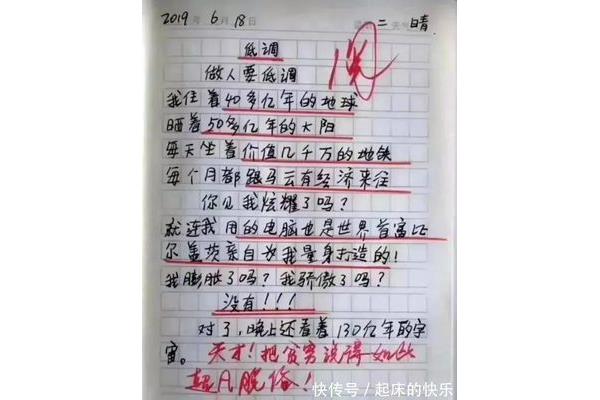 2019年6月18日 二 晴
低调
做人要低调
我住着40多亿年的地球
晒着50多亿年的太阳
每天坐着价值几千万的地铁
每个月都跟马云有经济来往
你见我炫耀了吗？
就连我用的电脑也是世界首富比
尔盖茨亲自为我量身打造的！
我膨胀了吗？我骄傲了吗？
没有！！！
对了，晚上还看着130亿年的宇
宙。天才！把贫穷说得如此
超凡脱俗！
快传号/起床的快乐